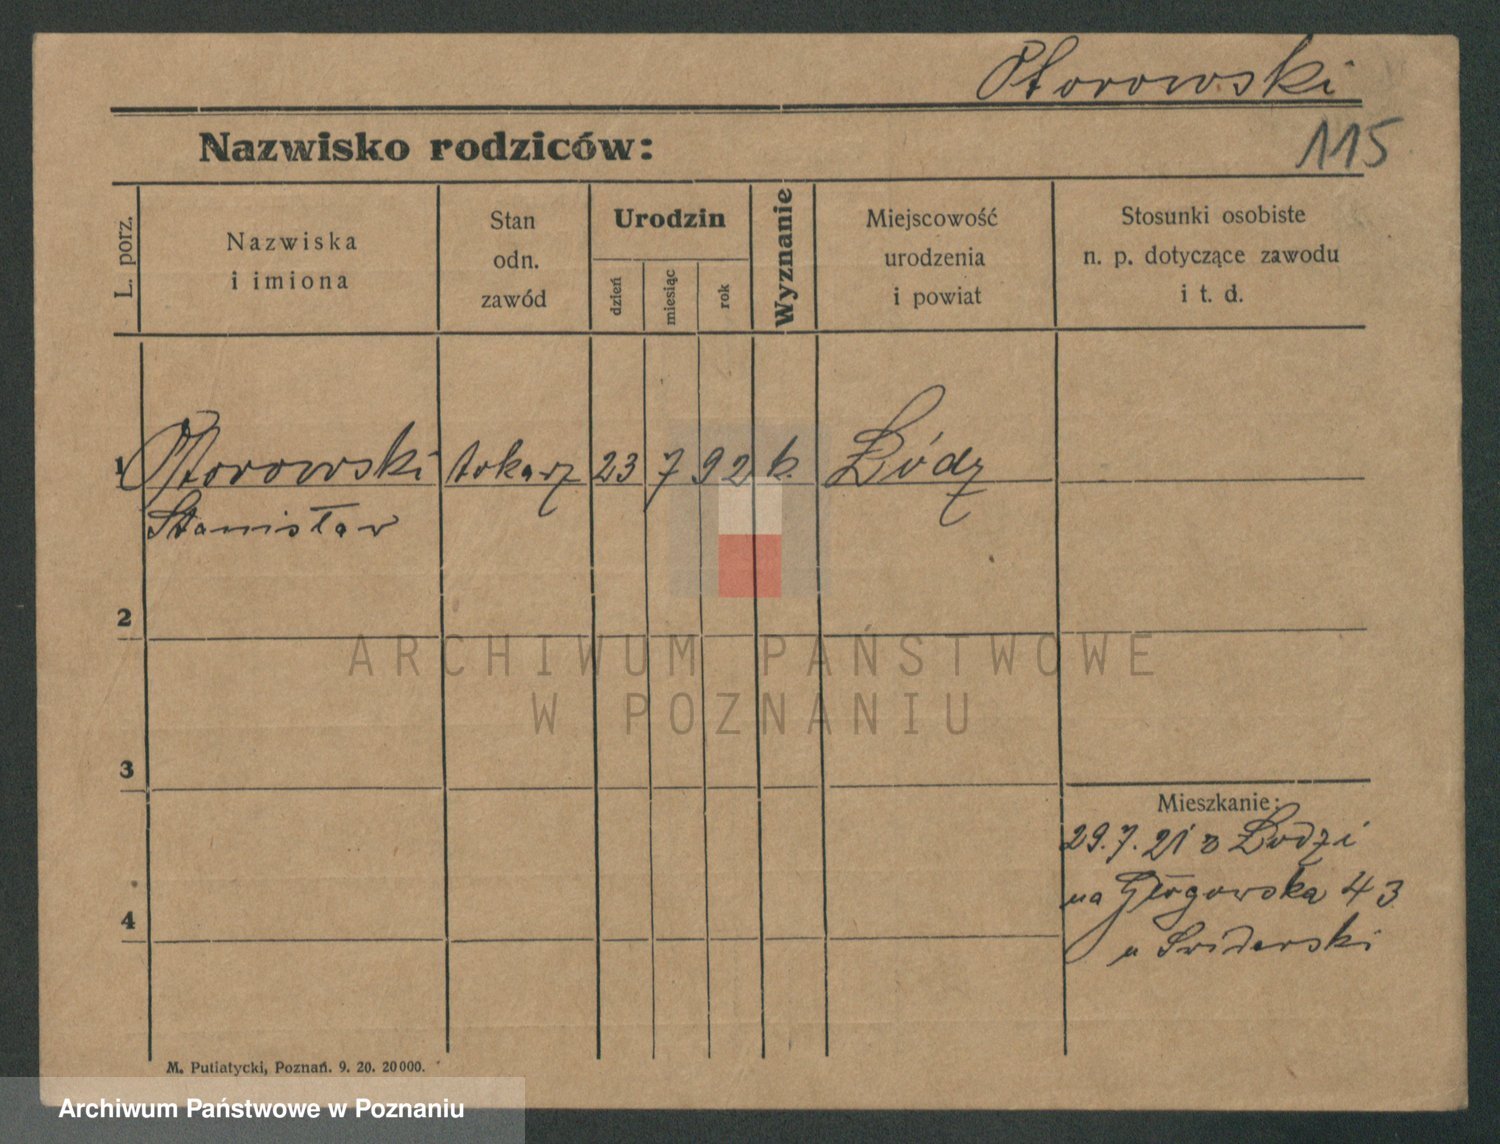 Otorowski
115
Nazwisko rodziców:
L. porz.
Nazwiska
i imiona
Stan
odn.
zawód
Urodzin
dzień
miesiąc
rok
Wyznanie
Miejscowość
urodzenia
i powiat
Stosunki osobiste
n. p. dotyczące zawodu
i t. d.
1 Otorowski tokarz 23 7 92 k. Łódz
Stanisław
2
ARCHIWUM PAŃSTWOWE
W POZNANIU
3
Mieszkanie:
29.7.21 z Łodzi
na Głogowska 43
4
u Swiderski
M. Putiatycki, Poznań. 9. 20. 20 000.
Archiwum Państwowe w Poznaniu